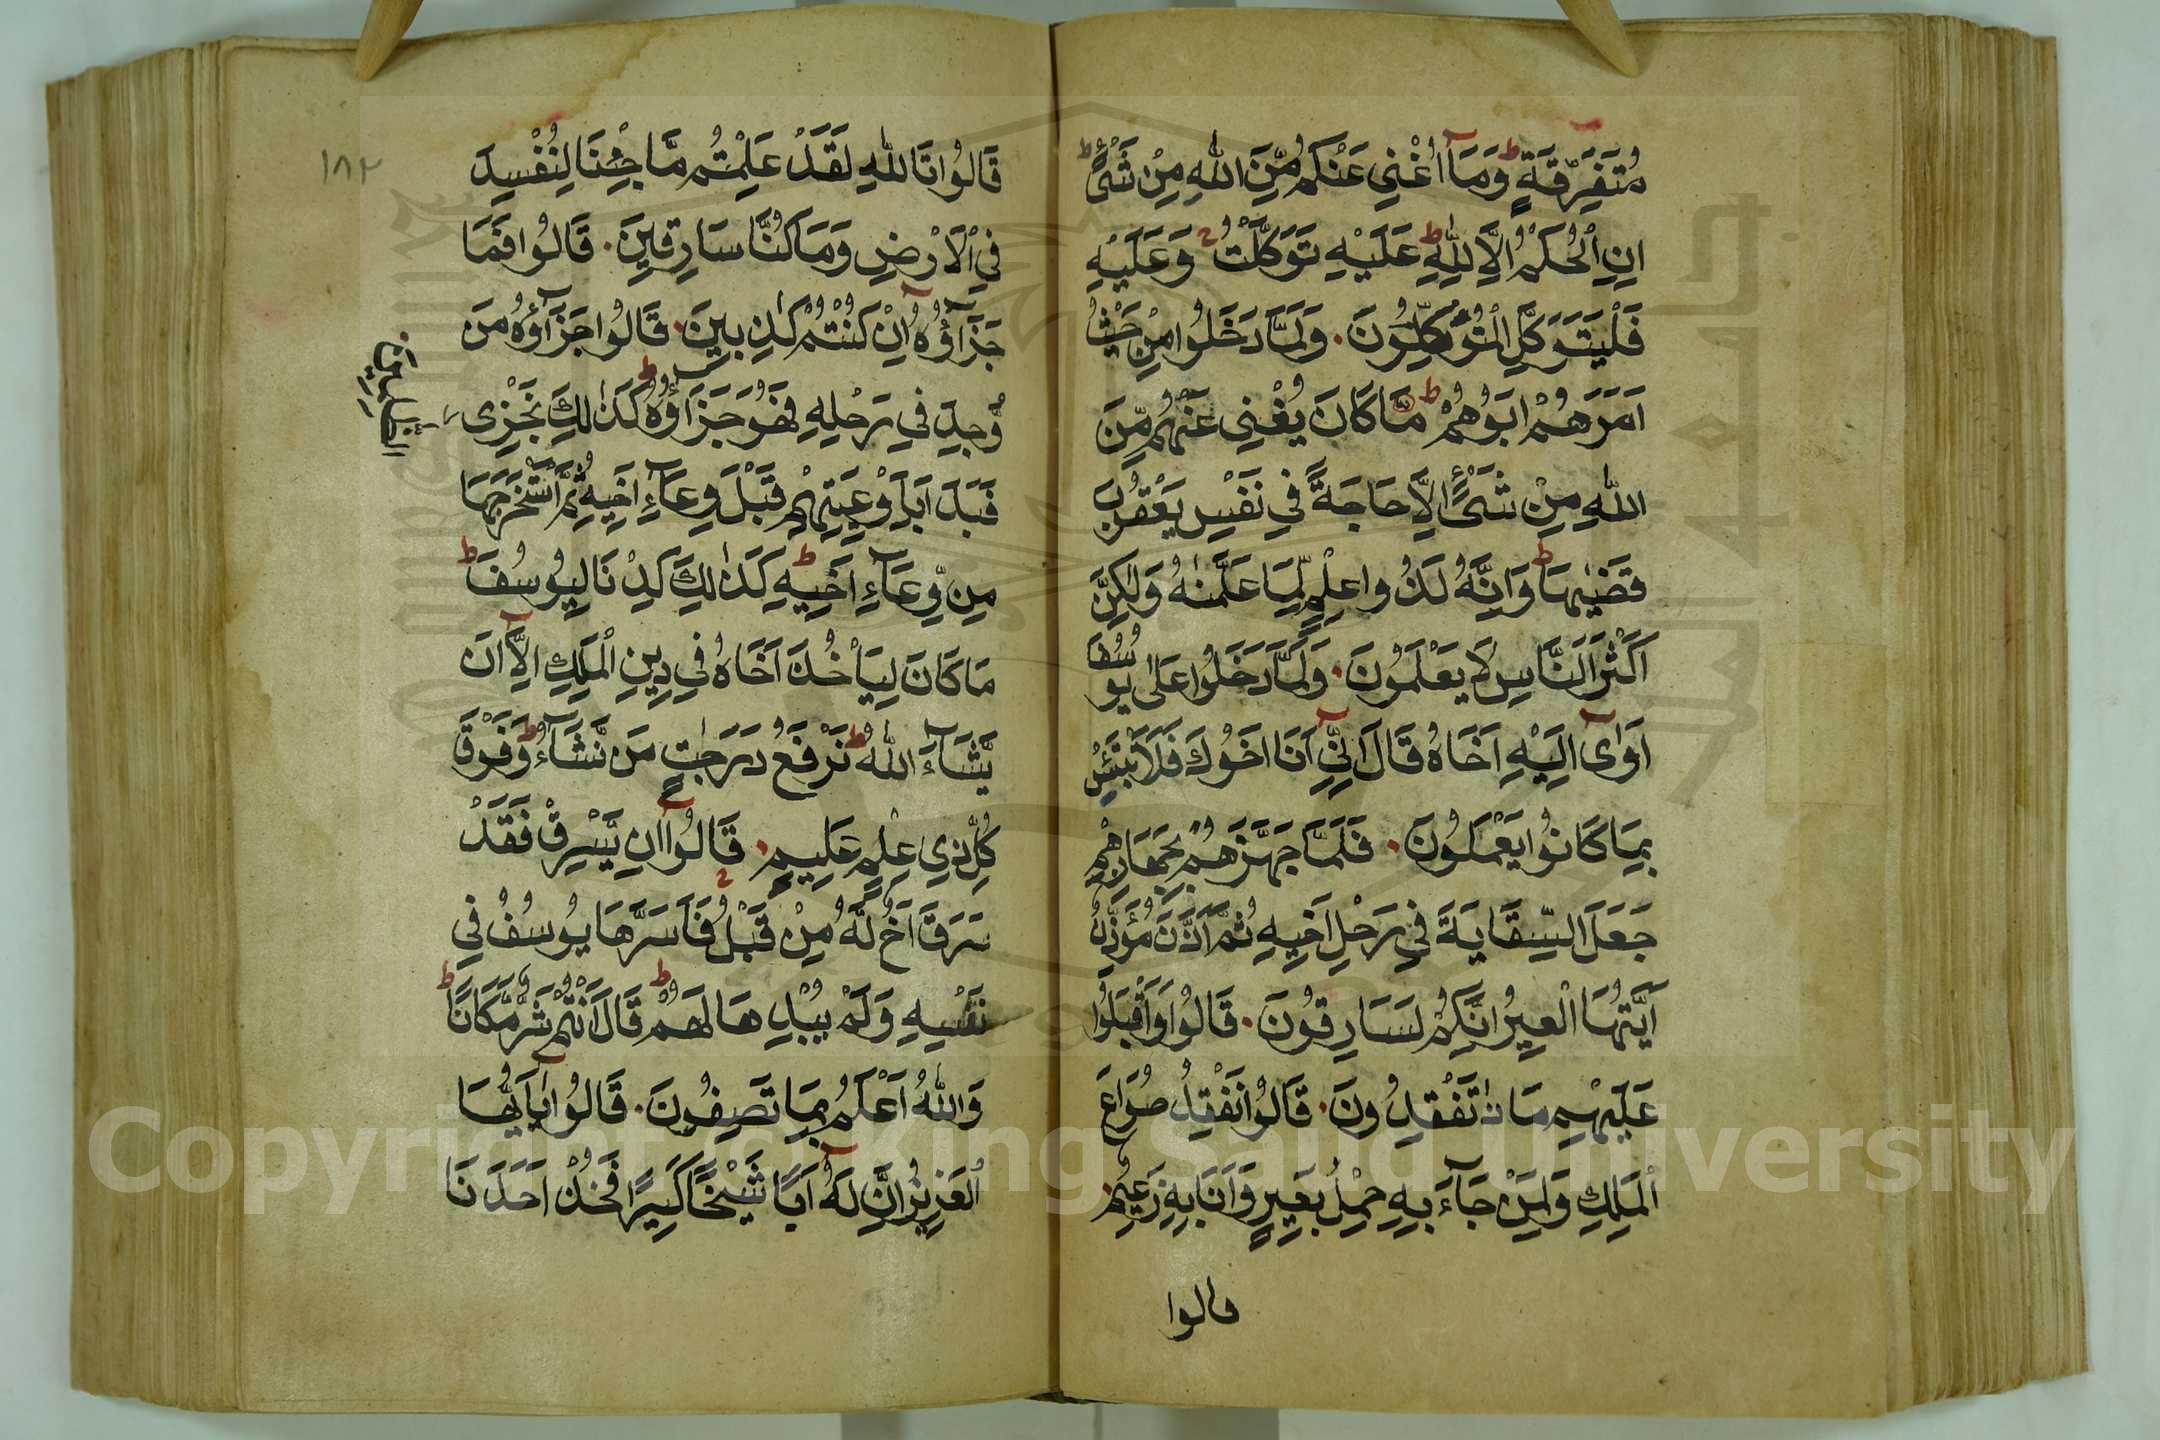 مُتَفَرِّقَةٍ ط وَمَآ اُغْنِي عَنْكُمْ مِّنَ اللّٰهِ مِنْ شَيْءٍ ط
اِنِ الْحُكْمُ اِلَّا لِلّٰهِ ط عَلَيْهِ تَوَكَّلْتُ ج وَعَلَيْهِ
فَلْيَتَوَكَّلِ الْمُتَوَكِّلُونَ . وَلَمَّا دَخَلُوا مِنْ حَيْثُ
اَمَرَهُمْ اَبُوهُمْ ط مَا كَانَ يُغْنِى عَنْهُمْ مِّنَ
اللّٰهِ مِنْ شَيْءٍ اِلَّا حَاجَةً فِي نَفْسِ يَعْقُوبَ
قَضٰيهَا ط وَاِنَّهُ لَذُو اعِلْمٍ لِّمَا عَلَّمْنٰهُ وَلٰكِنَّ
اَكْثَرَ النَّاسِ لَا يَعْلَمُونَ . وَلَمَّا دَخَلُوا عَلٰى يُوسُفَ
اٰوٰىٓ اِلَيْهِ اَخَاهُ قَالَ اِنِّيٓ اَنَا اَخُوكَ فَلَا تَبْتَئِسْ
بِمَا كَانُوا يَعْمَلُونَ . فَلَمَّا جَهَّزَهُمْ بِجَهَازِهِمْ
جَعَلَ السِّقَايَةَ فِي رَحْلِ اَخِيهِ ثُمَّ اَذَّنَ مُؤَذِّنٌ
اَيَّتُهَا الْعِيرُ اِنَّكُمْ لَسَارِقُونَ . قَالُوا وَاَقْبَلُوا
عَلَيْهِمْ مَاذَا تَفْقِدُونَ . قَالُوا نَفْقِدُ صُوَاعَ
الْمَلِكِ وَلِمَنْ جَآءَ بِهِ حِمْلُ بَعِيرٍ وَاَنَا بِهِ زَعِيمٌ .
قالوا
١٨٢
قَالُوا تَاللّٰهِ لَقَدْ عَلِمْتُمْ مَّا جِئْنَا لِنُفْسِدَ
فِي الْاَرْضِ وَمَا كُنَّا سَارِقِينَ . قَالُوا فَمَا
جَزَآؤُهُٓ اِنْ كُنْتُمْ كَاذِبِينَ . قَالُوا جَزَآؤُهُ مَنْ
وُّجِدَ فِي رَحْلِهِ فَهُوَ جَزَاؤُهُ ط كَذٰلِكَ نَجْزِى
الظَّالِمِينَ .
فَبَدَاَ بِاَوْعِيَتِهِمْ قَبْلَ وِعَآءِ اَخِيهِ ثُمَّ اسْتَخْرَجَهَا
مِنْ وِّعَآءِ اَخِيهِ ط كَذٰلِكَ كِدْنَا لِيُوسُفَ ط
مَا كَانَ لِيَاْخُذَ اَخَاهُ فِي دِينِ الْمَلِكِ اِلَّآ اَنْ
يَّشَآءَ اللّٰهُ ط نَرْفَعُ دَرَجٰتٍ مَنْ نَّشَآءُ ط وَفَوْقَ
كُلِّ ذِي عِلْمٍ عَلِيمٌ . قَالُوآ اِنْ يَّسْرِقْ فَقَدْ
سَرَقَ اَخٌ لَّهُ مِنْ قَبْلُ ج فَاَسَرَّهَا يُوسُفُ فِي
نَفْسِهِ وَلَمْ يُبْدِهَا لَهُمْ ط قَالَ اَنْتُمْ شَرٌّ مَّكَانًا ط
وَاللّٰهُ اَعْلَمُ بِمَا تَصِفُونَ . قَالُوا يٰٓاَيُّهَا
الْعَزِيزُ اِنَّ لَهُٓ اَبًا شَيْخًا كَبِيرًا فَخُذْ اَحَدَنَا
Copyright © King Saud University